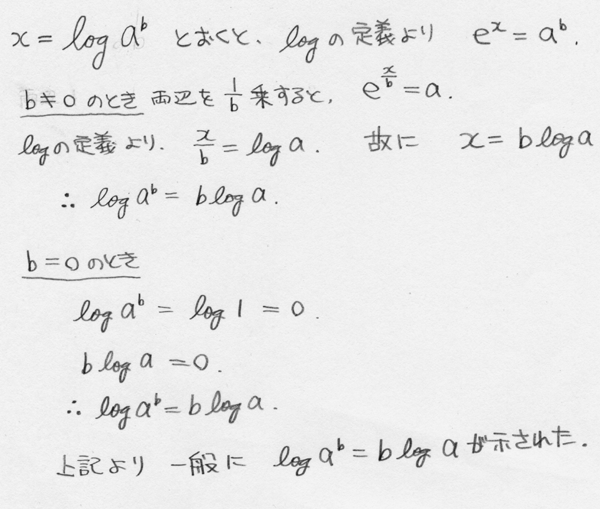 x = log a^b とおくと、log の定義より e^x = a^b.
b≠0 のとき 両辺を 1/b 乗すると, e^(x/b) = a.
logの定義より. x/b = log a. 故に x = b log a
∴ log a^b = b log a.
b=0 のとき
log a^b = log 1 = 0.
b log a = 0.
∴ log a^b = b log a.
上記より 一般に log a^b = b log a が示された.